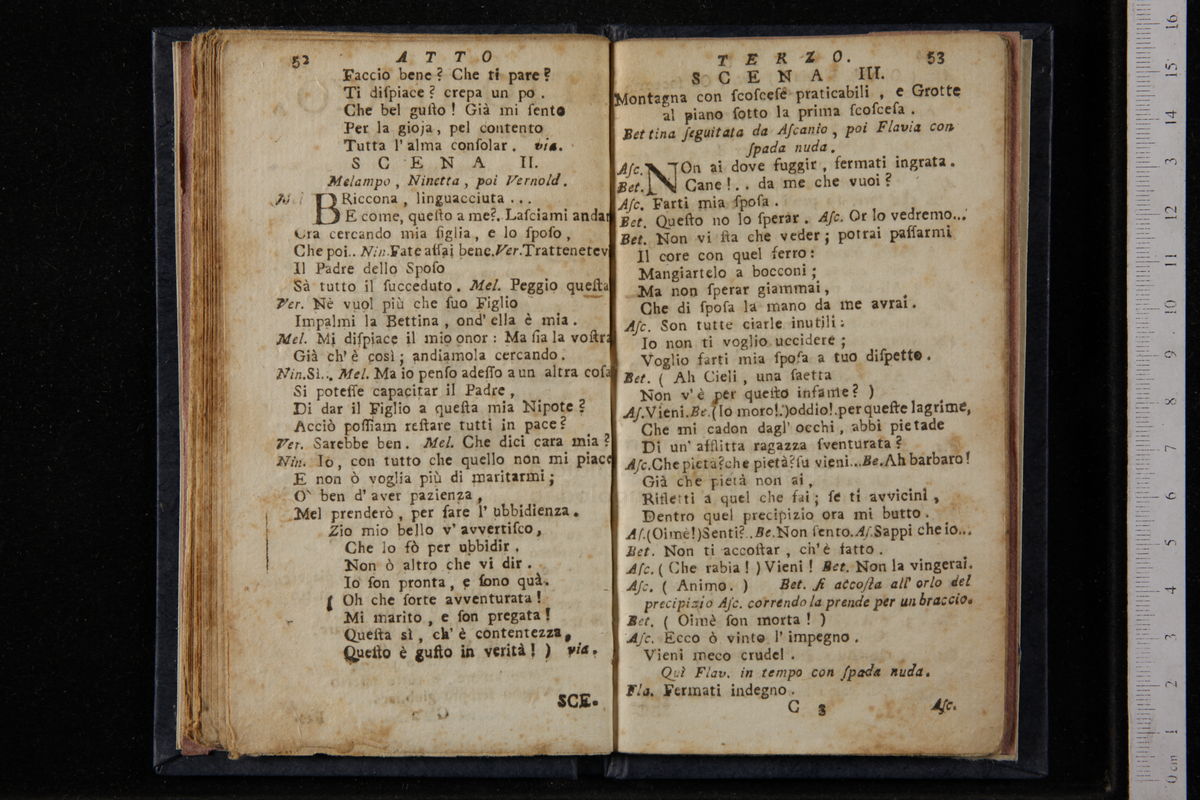 52 ATTO
Faccio bene? Che ti pare?
Ti diſpiace? crepa un po.
Che bel guſto! Già mi ſento
Per la gioja, pel contento
Tutta l'alma conſolar. via.
SCENA II.
Melampo, Ninetta, poi Vernold.
BRiccona, linguacciuta...
E come, queſto a me?. Laſciami andar
Ora cercando mia figlia, e lo ſpoſo,
Che poi.. Nin. Fate aſſai bene. Ver. Trattenetev
Il Padre dello Spoſo
Sà tutto il ſucceduto. Mel. Peggio queſta
Ver. Nè vuol più che ſuo Figlio
Impalmi la Bettina, ond'ella è mia.
Mel. Mi diſpiace il mio onor: Ma ſia la voſtra
Già ch'è così; andiamola cercando.
Nin. Sì... Mel. Ma io penſo adeſſo a un altra coſa
Si poteſſe capacitar il Padre,
Di dar il Figlio a queſta mia Nipote?
Acciò poſſiam reſtare tutti in pace?
Ver. Sarebbe ben. Mel. Che dici cara mia?
Nin. Io, con tutto che quello non mi piace
E non ò voglia più di maritarmi;
O` ben d'aver pazienza,
Mel prenderò, per fare l'ubbidienza.
Zio mio bello v'avvertiſco,
Che lo fò per ubbidir.
Non ò altro che vi dir.
Io ſon pronta, e ſono quà.
( Oh che ſorte avventurata!
Mi marito, e ſon pregata!
Queſta sì, ch'è contentezza,
Queſto è guſto in verità! ) via.
SCE.
TERZO. 53
SCENA III.
Montagna con ſcoſceſe praticabili, e Grotte
al piano ſotto la prima ſcoſceſa.
Bettina ſeguitata da Aſcanio, poi Flavia con
ſpada nuda.
Aſc. NOn ai dove fuggir, fermati ingrata.
Bet. Cane!.. da me che vuoi?
Aſc. Farti mia ſpoſa.
Bet. Queſto no lo ſperar. Aſc. Or lo vedremo...
Bet. Non vi ſta che veder; potrai paſſarmi
Il core con quel ferro:
Mangiartelo a bocconi;
Ma non ſperar giammai,
Che di ſpoſa la mano da me avrai.
Aſc. Son tutte ciarle inutili:
Io non ti voglio uccidere;
Voglio farti mia ſpoſa a tuo diſpetto.
Bet. ( Ah Cieli, una ſaetta
Non v'è per queſto infame? )
Aſ. Vieni. Be. (Io moro!.) oddio!. per queſte lagrime,
Che mi cadon dagl'occhi, abbi pietade
Di un'afflitta ragazza ſventurata?
Aſc. Che pietà? che pietà? ſu vieni... Be. Ah barbaro!
Già che pietà non ai,
Rifletti a quel che fai; ſe ti avvicini,
Dentro quel precipizio ora mi butto.
Aſ. (Oimè!) Senti?. Be. Non ſento. Aſ. Sappi che io...
Bet. Non ti accoſtar, ch'è fatto.
Aſc. ( Che rabia! ) Vieni! Bet. Non la vingerai.
Aſc. ( Animo. ) Bet. ſi accoſta all'orlo del
precipizio Aſc. correndo la prende per un braccio.
Bet. ( Oimè ſon morta! )
Aſc. Ecco ò vinto l'impegno.
Vieni meco crudel.
Quì Flav. in tempo con ſpada nuda.
Fla. Fermati indegno.
C 3 Aſc.